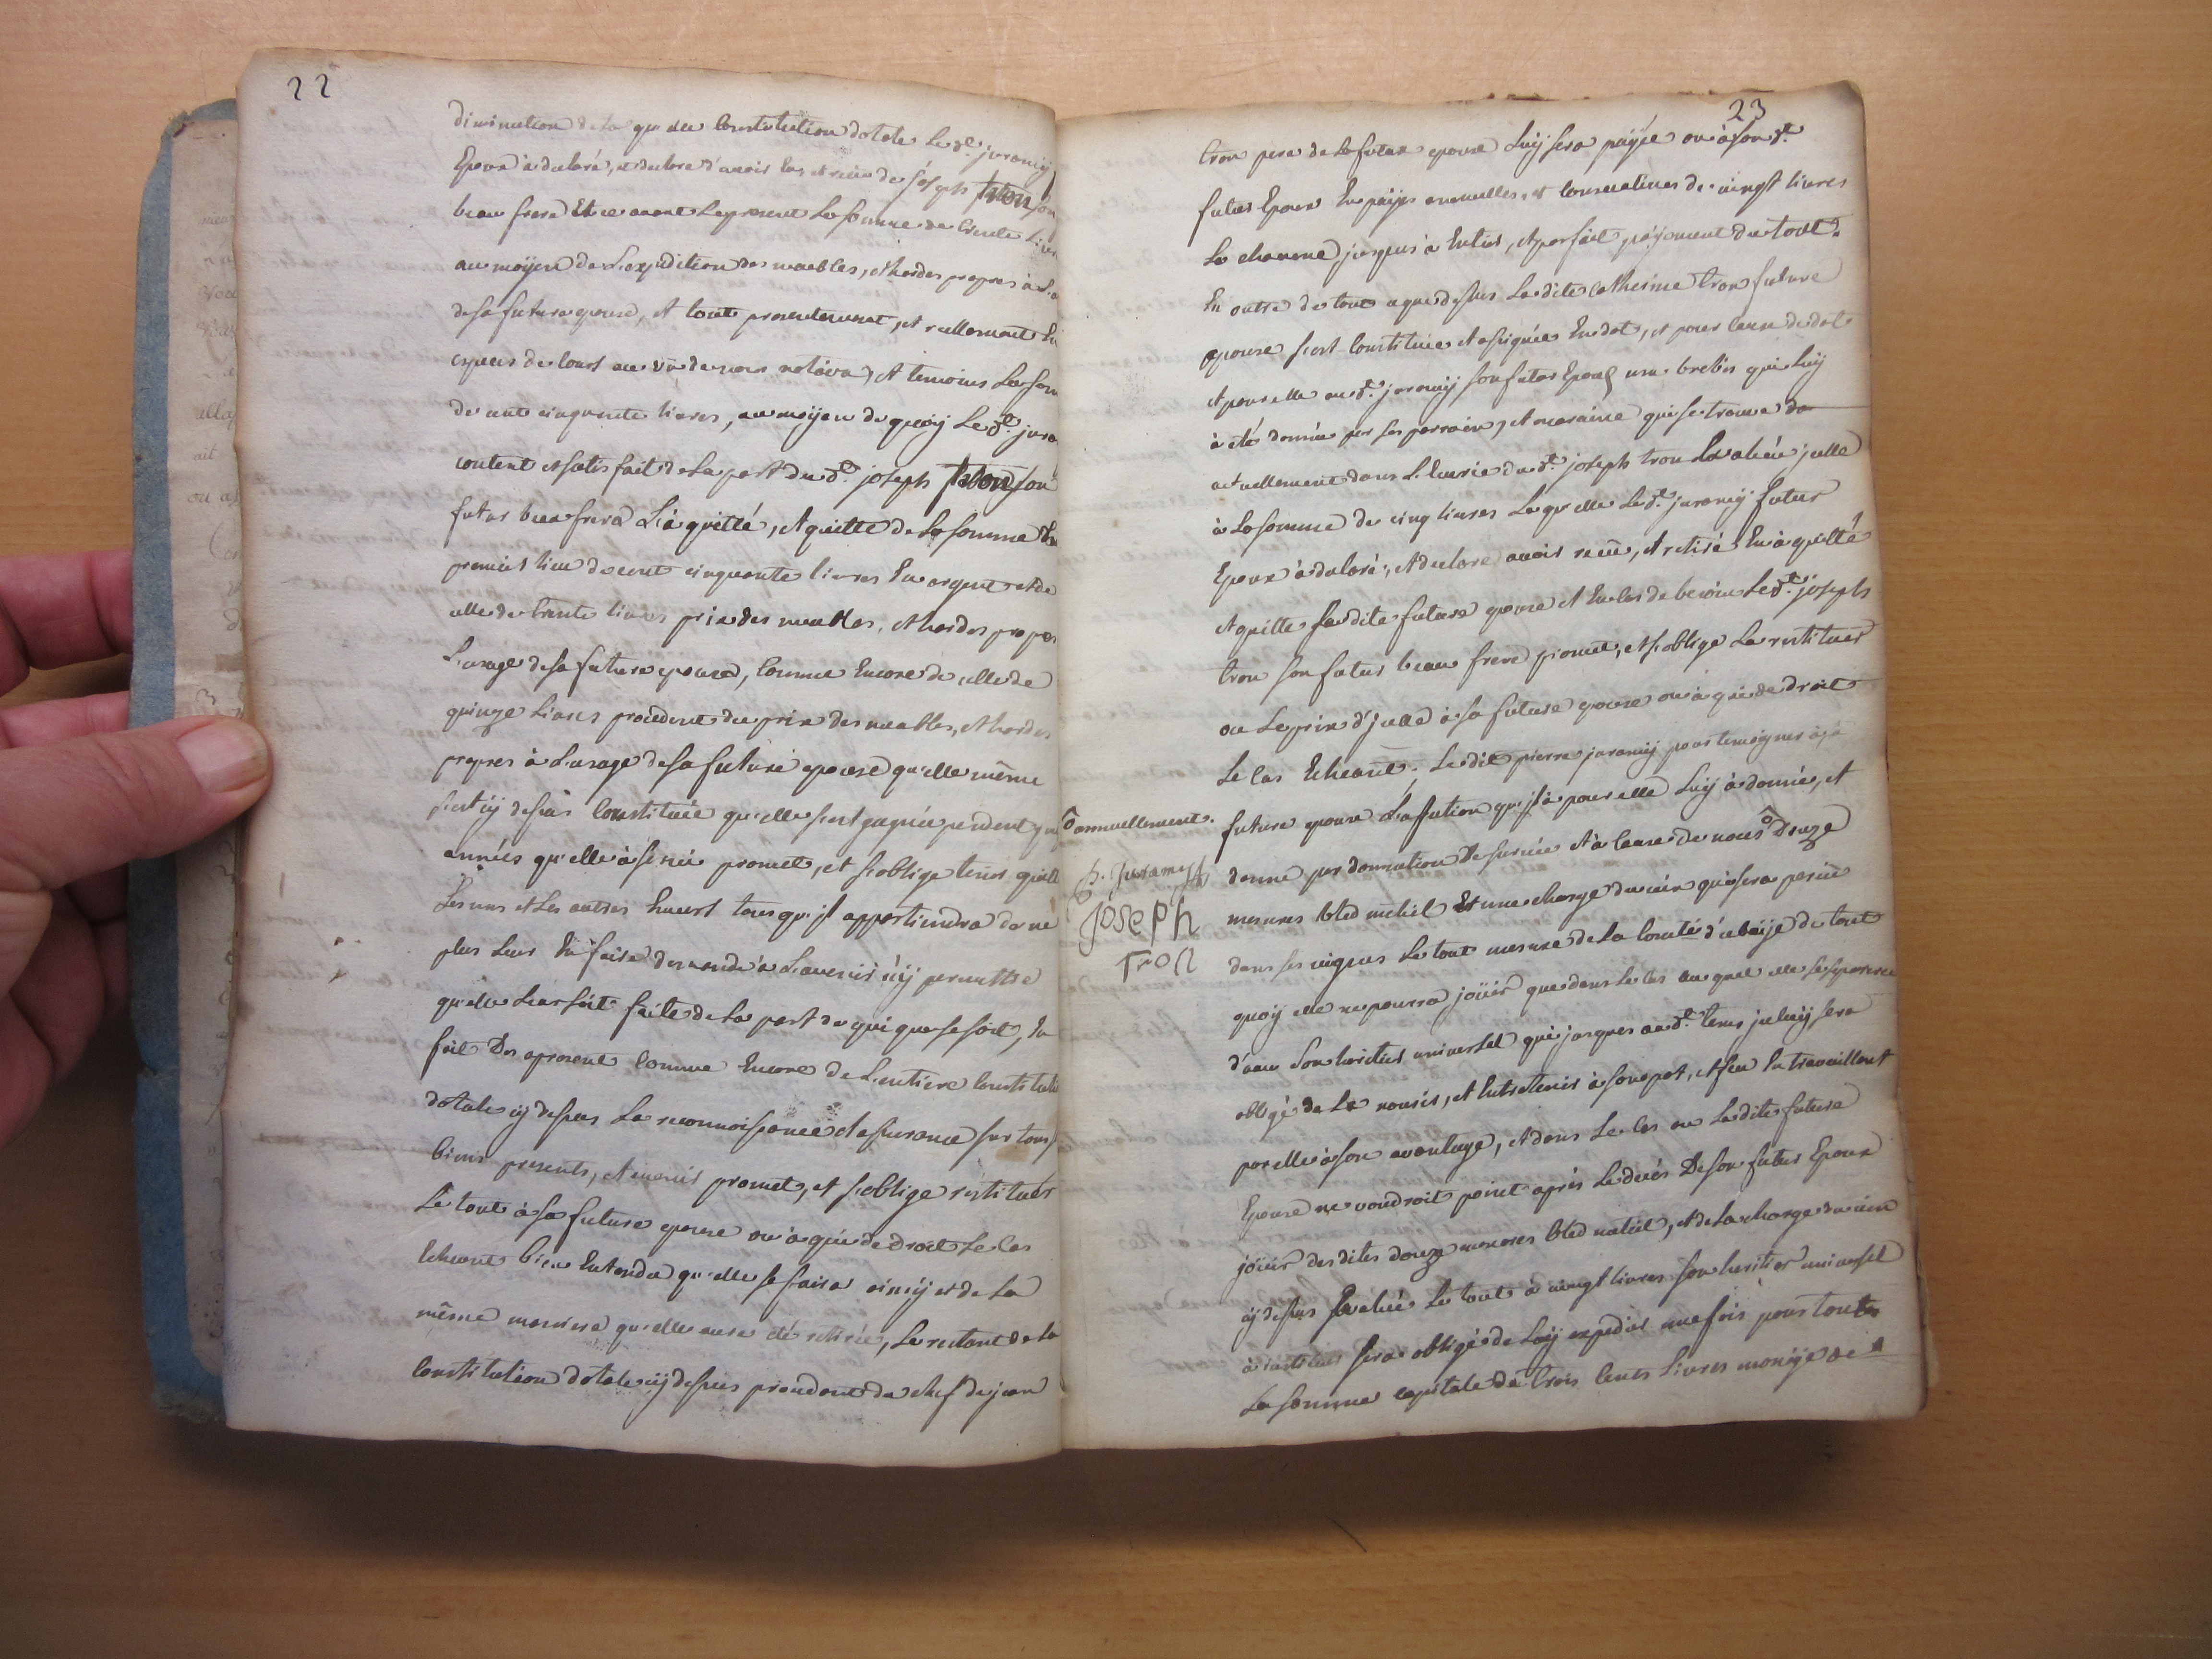 22
diminution de laquelle Constitution dotale Le dt. juramy
Epoux à declaré, et declare d'avoir las et reçu de joseph tron son
beau frere Et ce avant Le present La somme de trente Livres
au moÿen de L'expedition des meubles, et hardes propres à L'
de sa future epouse, et tout presentement, et reellement En
especes de cours au vû de nous notaire, et temoins La som
de cent cinquante livres, au moÿen de quoy Le dt. jura
content et satisfait de La part du dt. joseph tron son
futur beau frere L'à quitté, et quitte de La somme En
premier lieu de cent cinquante livres En argent et de
celle de trente livres prix des meubles, et hardes propres
L'usage de sa future epouse, Comme Encore de celle de
quinze Livres procedent du prix des meubles, et hardes
propres à L'usage de sa future epouse qu'elle même
s'est cÿ dessus Constituée qu'elle s'est gagnée pendent
années qu'elle à servie promet, et s'oblige tenir quitte
Les uns et Les autres Envers tous qu'jl appartiendra de ne
plus Leur En faire demende à L'avenir n'ÿ permettre
qu'elle Leur soit faite de La part de qui que se soit, En
fait Des apresent Comme Encore de L'entiere Constitution
dotale cÿ dessus La reconnoissance et assurance sur tous
biens presents, et avenir promet, et s'oblige restituer
Le tout à sa future epouse ou à qui de droit Le Cas
Echeant bien Entendu qu'elle se faira ainsÿ et de La
même maniere qu'elle aura été retirée, Le restant de La
Constitution dotale cÿ dessus procedant du chef de jean
23
tron pere de La future epouse Luÿ sera paÿée ou à son dt.
futur Epoux En païes annuelles, et consecutives de vingt livres
La chacune jusques à Entier, et parfait païement du tout.
En outre de tout ce que dessus La dite Catherine tron future
epouse s'est Constituée et assignée En dot, et pour cause de dot
et pour elle au dt. juramÿ son futur Epoux une brebis qui Luÿ
à été donnée par ses parrain, et maraine qui se trouve
actuellement dans L'Ecurie du dt. joseph tron Evaluée jcelle
à La somme de cinq livres Laquelle Le dt. juramÿ futur
Epoux à declaré, et declare avoir reçue, et retiré En à quitté
et quitte sa dite future epouse et En Cas de besoin Le dt. joseph
tron son futur beau frere promet, et s'oblige La restituer
ou Le prix d'jcelle à sa future epouse ou à qui de droit
Le Cas Echeant; Le dit pierre juramÿ pour temoigner à sa
future epouse L'affection qu'jl à pour elle Luÿ à donné, et
donne par donnation De survie et à Cause de noces Douze
mesures bled mêteil Et une charge du vin qui sera perçue
dans ses vignes Le tout mesure de La Comté d'
quoÿ elle ne pourra joüir que dans Le Cas au quel elle se separera
d'avec Son heritier universel qui jusques au dt. tems jceluÿ sera
obligé de La nourir, et Entretenir à son pot, et feu En travaillant
par elle à son avantage, et dans Le Cas ou La dite future
Epouse ne voudroit point après Le decès De son futur Epoux
joüir des dites douze mesures bled meteil, et de La charge du vin
cÿ dessus Evalué Le tout à vingt livres son heritier universel
à instituer sera obligé de Luÿ expedier une fois pour toutes
La somme capitale de trois Cents Livres monoÿe de
annuellement.
p. Juramy
joseph
Tron